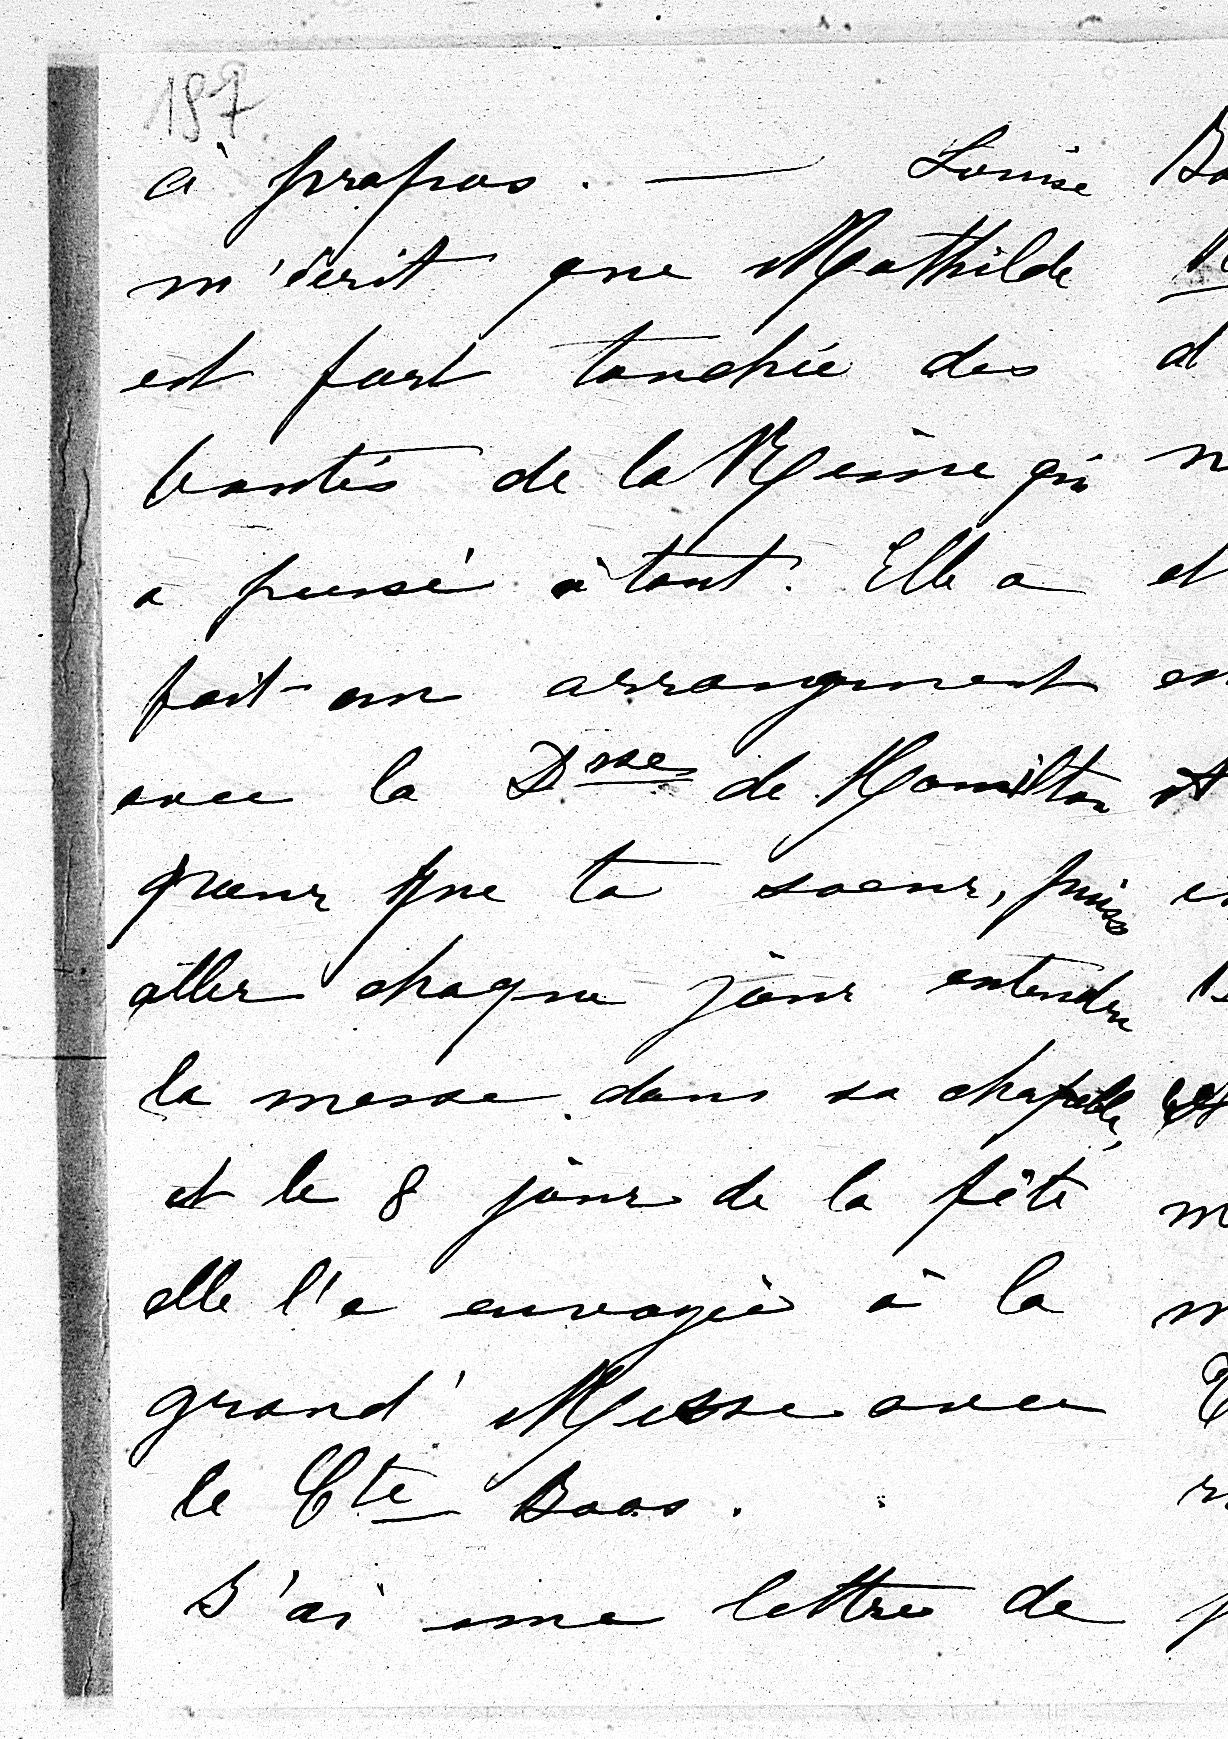 187
à propos. — Louise
m'écrit que Mathilde
est fort touchée des
bontés de la Reine qui
a pensé à tout. Elle a
fait un arrangement
avec la Dsse de Hamilton
pour que ta soeur, puisse
aller chaque jour entendre
la messe dans sa chapelle,
et le 8 jour de la fête
elle l'a envoyée à la
grand' Messe avec
le Cte Boos.
J'ai une lettre de